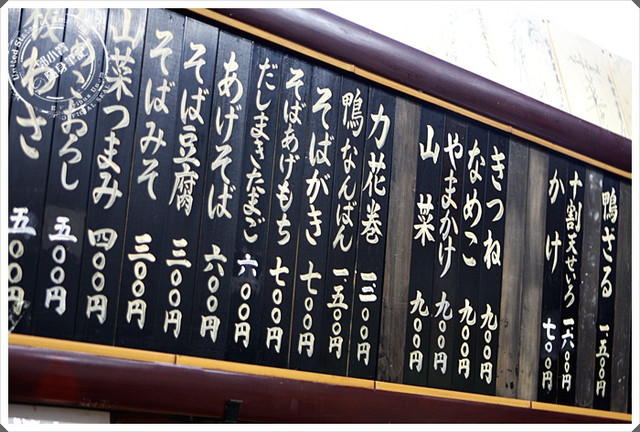 鴨ざる 一五〇〇円
十割天せいろ 一六〇〇円
かけ 七〇〇円
きつね 九〇〇円
なめこ 九〇〇円
やまかけ 九〇〇円
山菜 九〇〇円
力花巻 一三〇〇円
鴨なんばん 一五〇〇円
そばがき 七〇〇円
そばあげもち 七〇〇円
だしまきたまご 六〇〇円
あげそば 六〇〇円
そば豆腐 三〇〇円
そばみそ 三〇〇円
山菜つまみ 四〇〇円
おろし 五〇〇円
わさ 五〇〇円